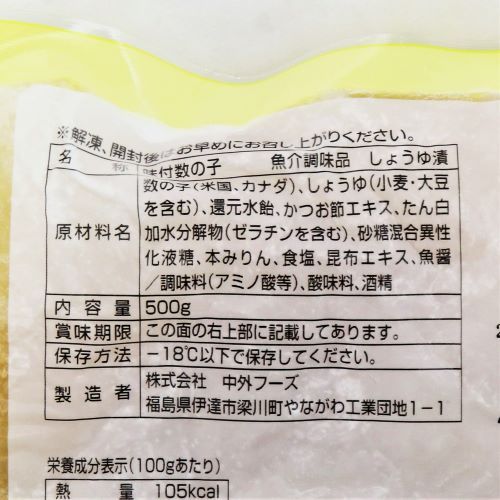 ※解凍、開封後はお早めにお召し上がりください。
名 称 味付数の子 魚介調味品 しょうゆ漬
原材料名 数の子(米国、カナダ)、しょうゆ(小麦・大豆
を含む)、還元水飴、かつお節エキス、たん白
加水分解物(ゼラチンを含む)、砂糖混合異性
化液糖、本みりん、食塩、昆布エキス、魚醤
/調味料(アミノ酸等)、酸味料、酒精
内容量 500g
賞味期限 この面の右上部に記載してあります。
保存方法 -18℃以下で保存してください。
製造者 株式会社 中外フーズ
福島県伊達市梁川町やながわ工業団地1-1
栄養成分表示(100gあたり)
熱 量 105kcal